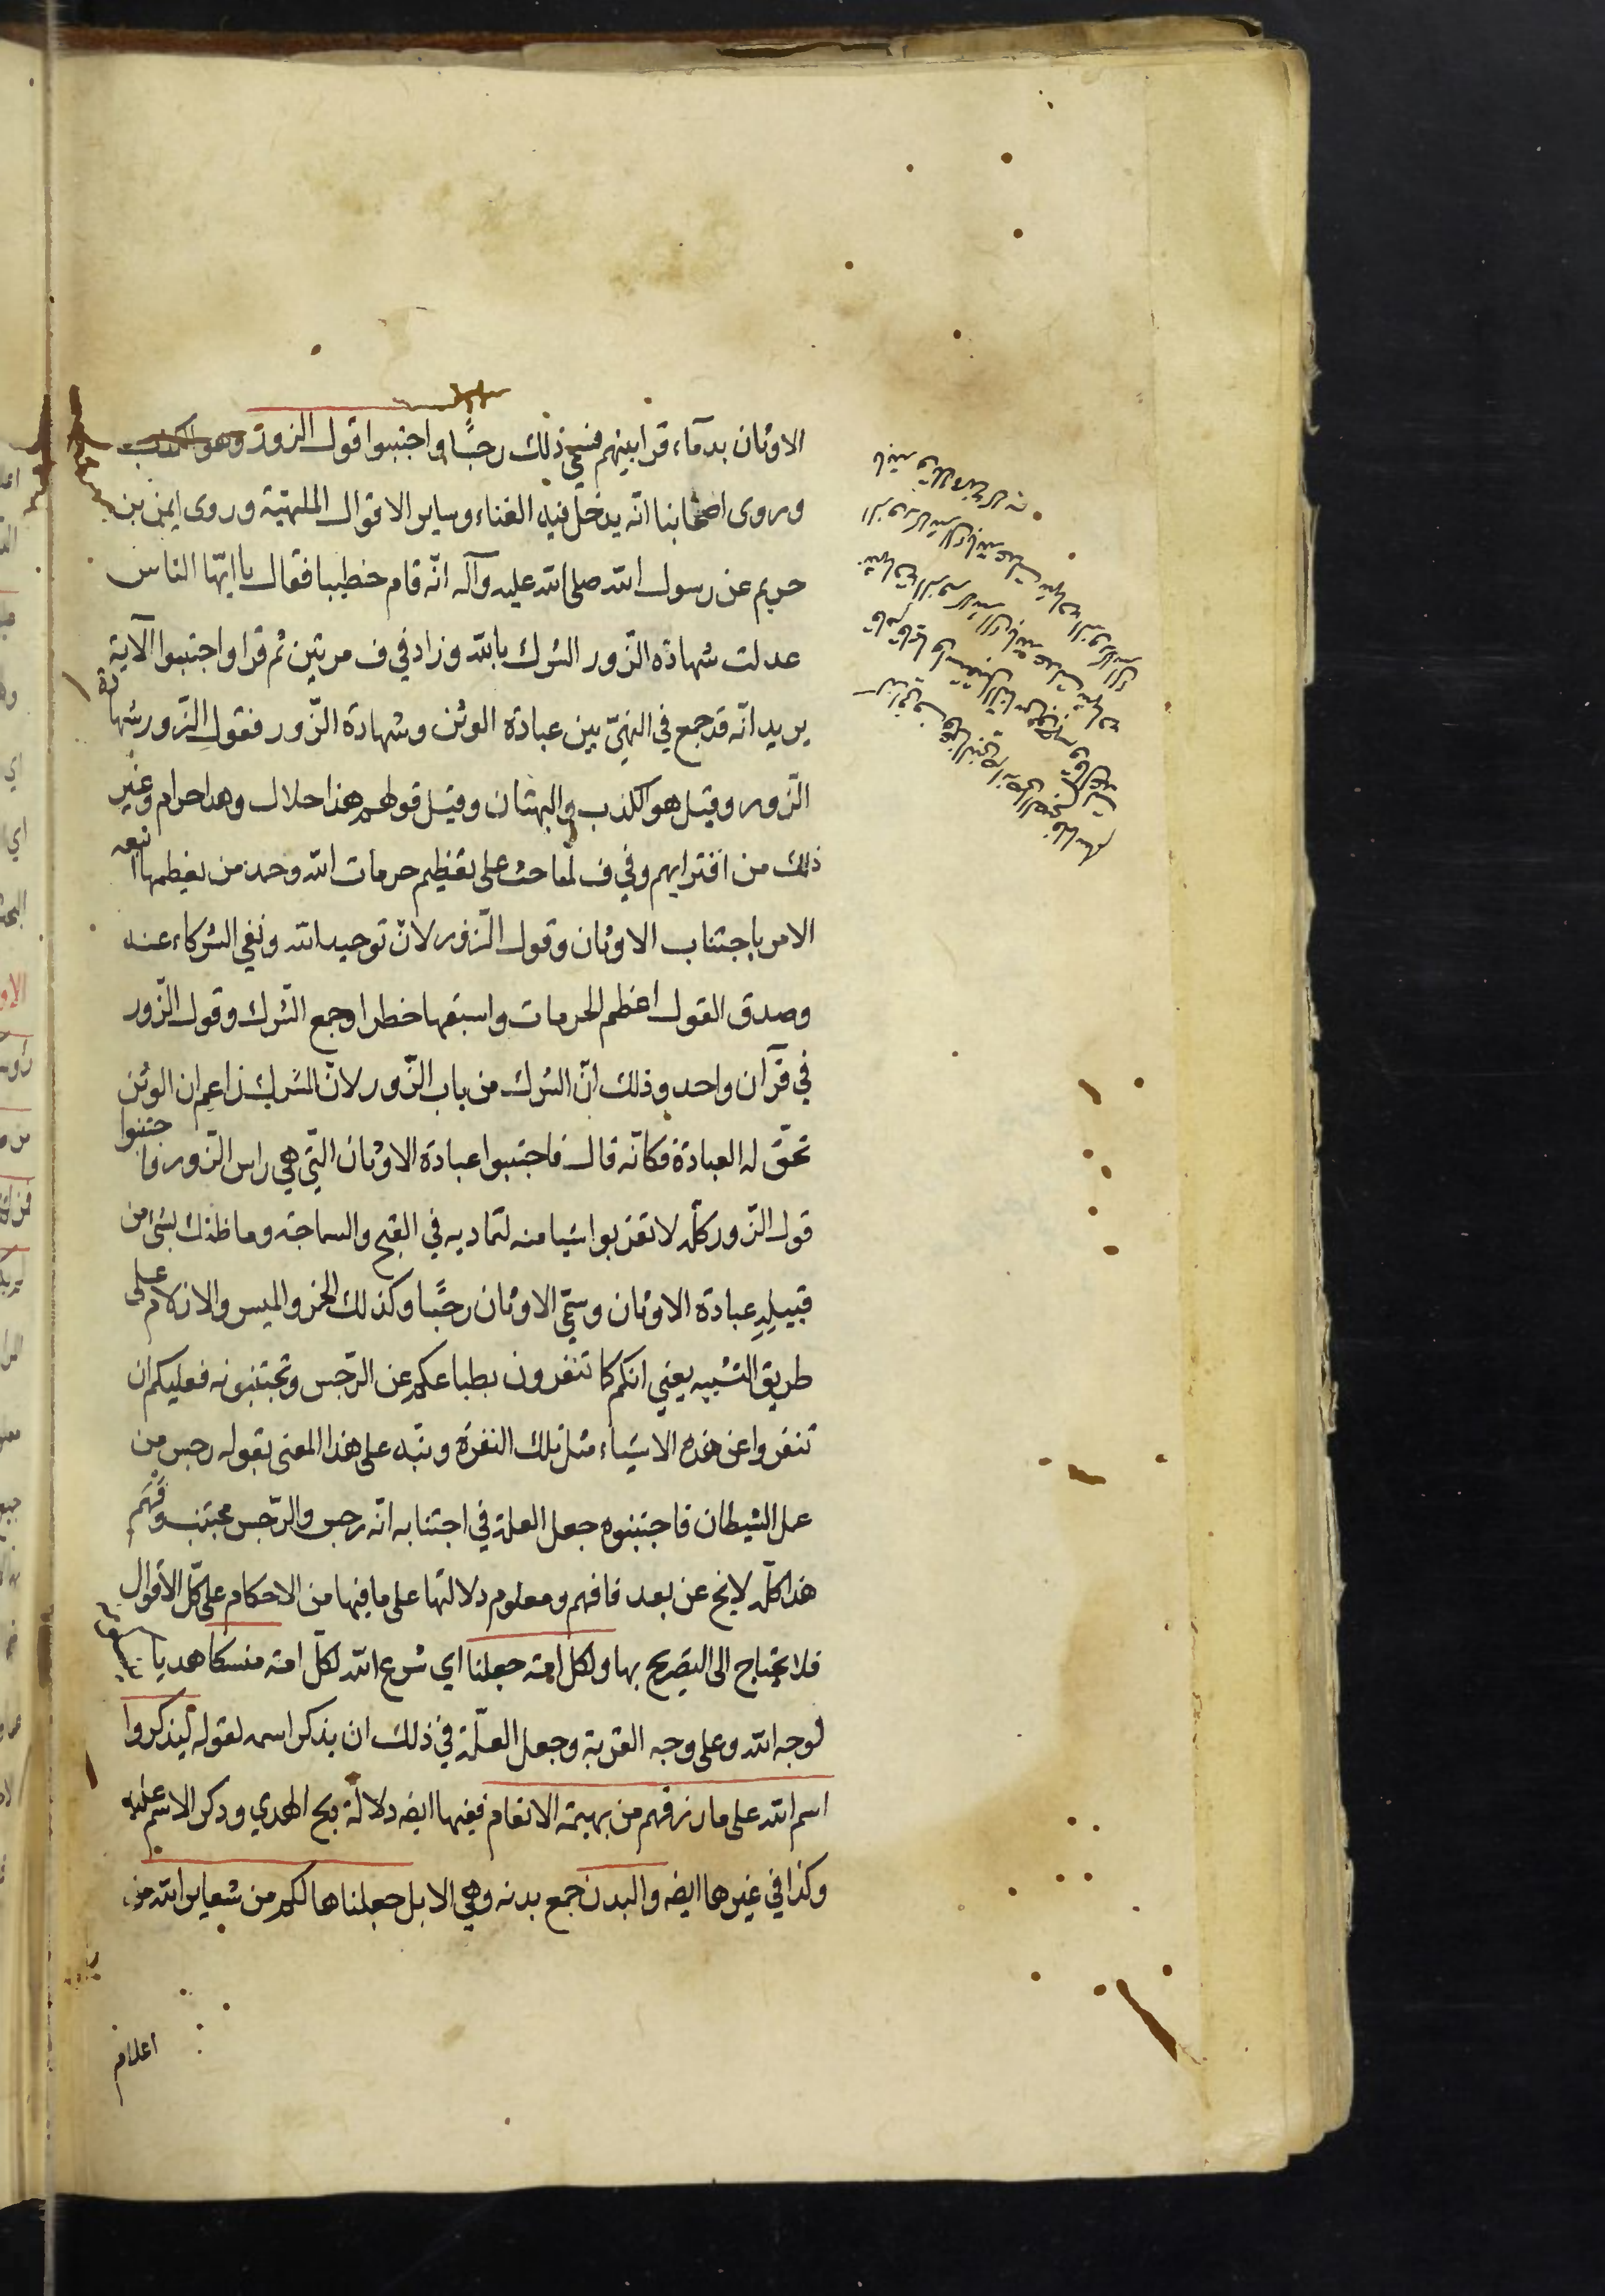 الاوثان بدمآء قرابينهم فسمي ذلك رجسًا واجتنبوا قول الزور وهو الكذب
وروى اصحابنا انّه يدخل فيه الغناء وساير الاقوال الملهيّة وروى ايمن بن
حريم عن رسول الله صلى الله عليه وآله انّه قام خطيبا فقال يا ايّها الناس
عدلت شهادة الزّور الشرك بالله وزاد في ف مرتين ثم قرا واجتنبوا الآية
يريد انّه قد جمع في النهيّ بين عبادة الوثن وشهادة الزّور فقول الزّور شهادة
الزّور وقيل هو الكذب والبهتان وقيل قولهم هذا حلال وهذا حرام وغير
ذلك من افترايهم وفي ف لما حث على تعظيم حرمات الله وحمد من يعظمها اتبعه
الامر باجتناب الاوثان وقول الزّور لانّ توحيد الله ونفي الشركاء عنه
وصدق القول اعظم الحرمات واسبقها خطرا وجمع الشرك وقول الزّور
في قرآن واحد وذلك انّ الشرك من باب الزّور لانّ المشرك زاعم ان الوثن
تحّق له العبادة فكانّه قال فاجتنبوا عبادة الاوثان التّي هي راس الزّور واجتنبوا
قول الزّور كلّه لا تقربوا شيا منه لتماديه في القبح والسماجة وما ظنك بشئ من
قبيله عبادة الاوثان وسمّي الاوثان رجسًا وكذلك الخمر والميسر والازلام على
طريق التشبيه يعني انكم كما تنفرون بطباعكم عن الرّجس وتجتنبونه فعليكم ان
تنفروا عن هذه الاشياء مثل تلك النفرة ونبّه على هذا المعنى بقوله رجس من
عمل الشيطان فاجتنبوه جعل العلة في اجتنابه انّه رجس والرّجس مجتنب وفهم
هذا كلّه لا يخ عن بعد فافهم ومعلوم دلالتها على ما فيها من الاحكام على كلّ الاقوال
فلا يحتاج الى التصريح بها ولكل امة جعلنا اي شرع الله لكلّ امة منسكا هديا
لوجه الله وعلى وجه القربة وجعل العلّة في ذلك ان يذكر اسمه لقوله ليذكروا
اسم الله على ما رزقهم من بهيمة الانعام ففيها ايضه دلالة بح الهدي وذكر الاسم عليه
وكذا في غيرها ايضه والبدن جمع بدنه وهي الابل جعلناها لكم من شعاير الله من
اعلام